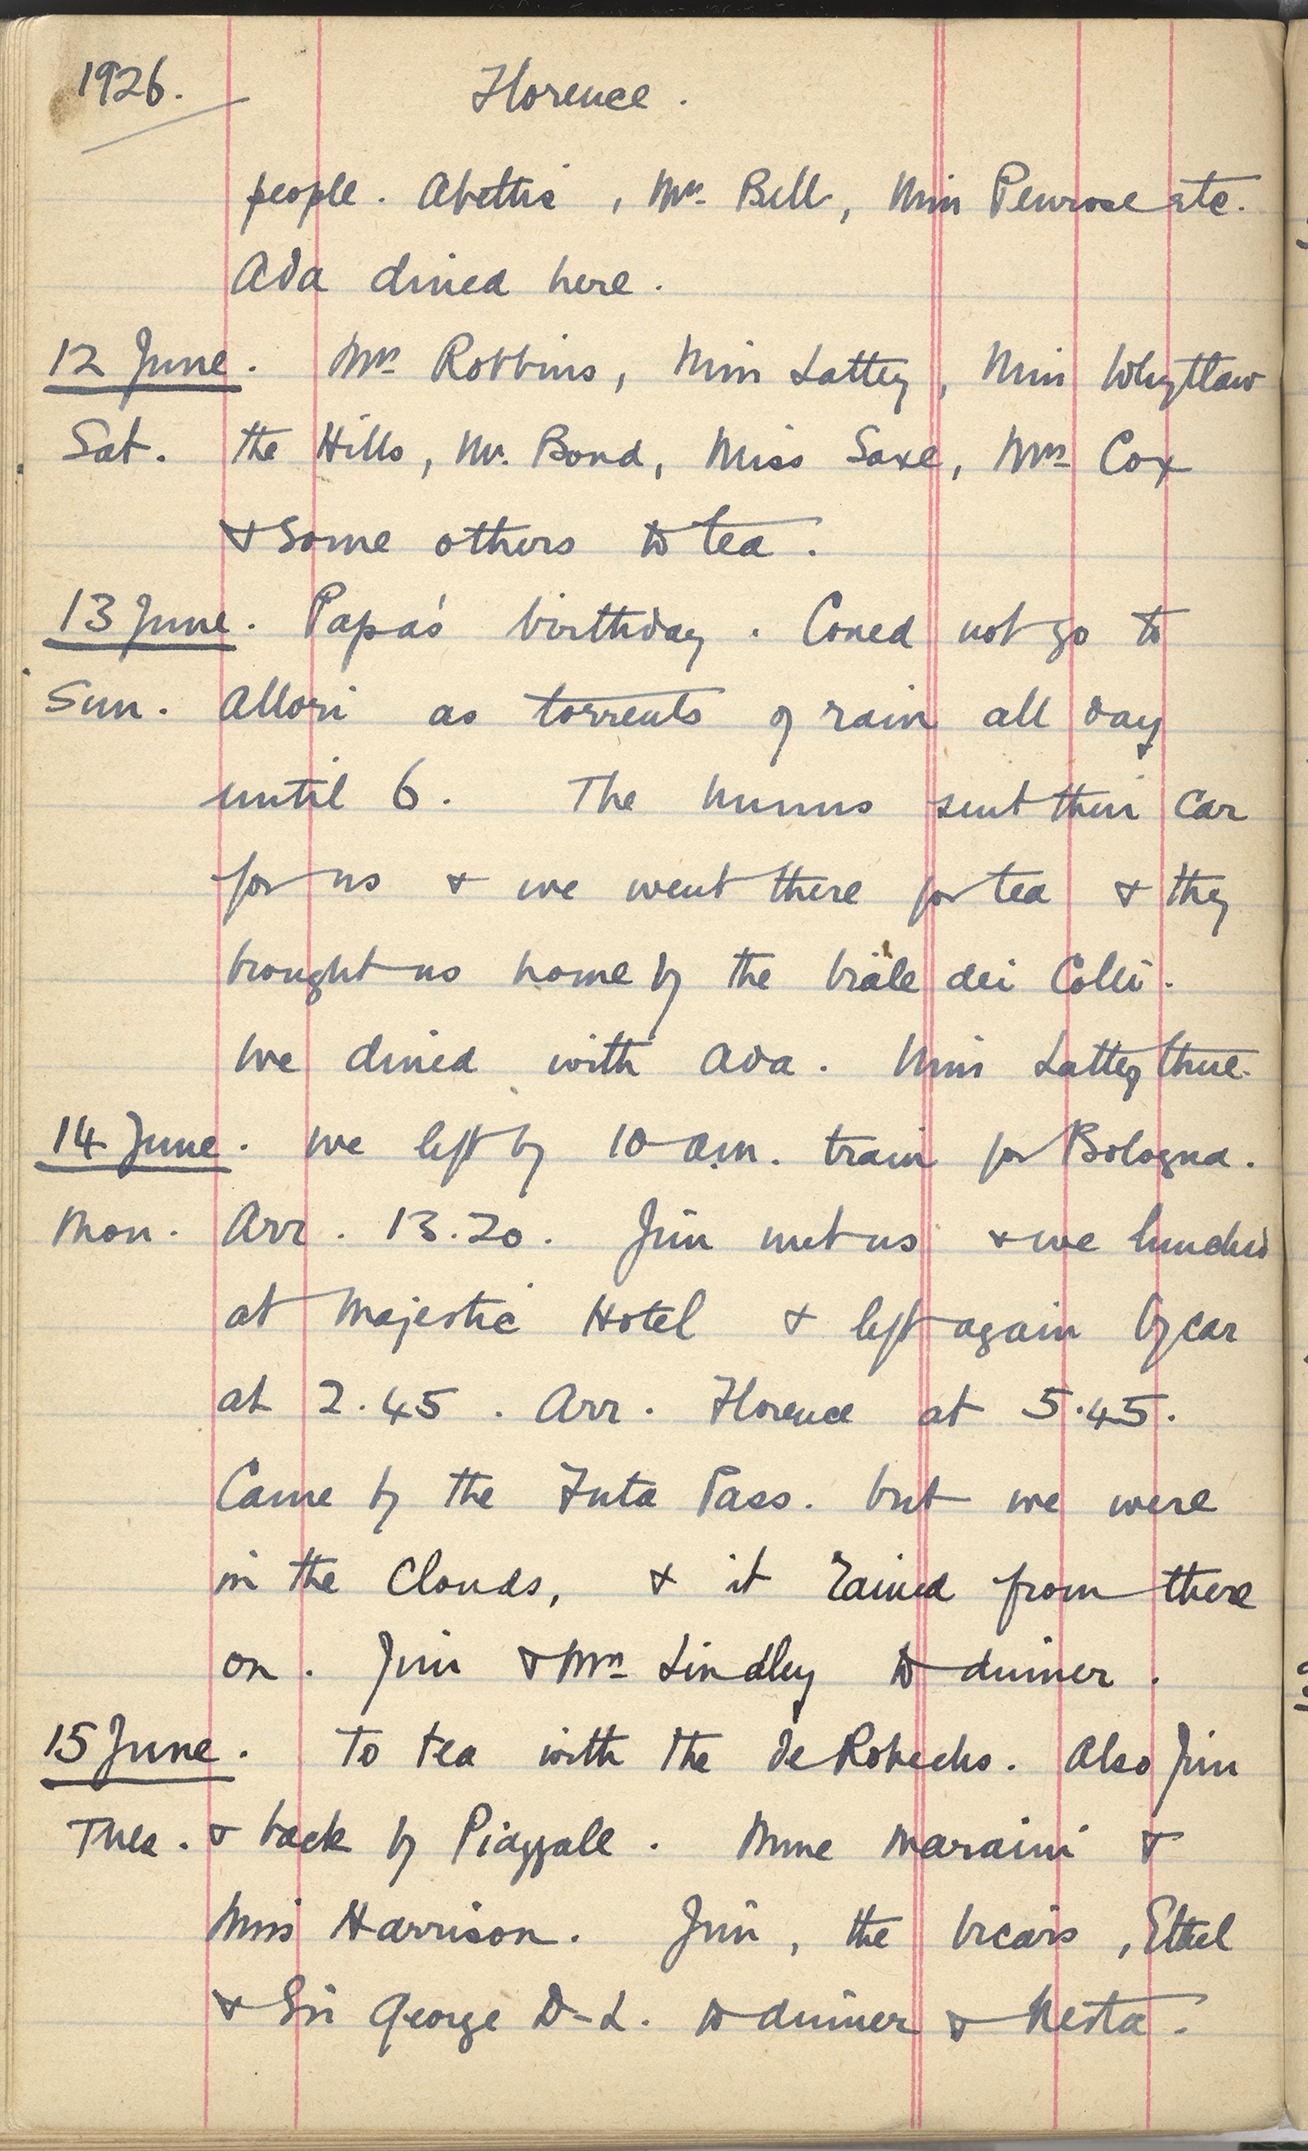 1926. Florence.
people. Abettis, Mrs. Bell, Miss Penrose etc.
Ada dined here.
12 June. Mrs Robbins, Miss Lattey, Miss Whytlaw
Sat. the Hills, Mr. Bond, Miss Saxe, Mrs Cox
& some others to tea.
13 June. Papa's birthday. Could not go to
Sun. Allori as torrents of rain all day
until 6. The sent their car
for us & we went there for tea & they
brought us home by the Viale dei Colli.
We dined with Ada. Miss Lattey there.
14 June. We left by 10 a.m. train for Bologna.
Mon. Arr. 13.20. Jim met us & we lunched
at Majestic Hotel & left again by car
at 2.45. Arr. Florence at 5.45.
Came by the Futa Pass. but we were
in the clouds, & it rained from there
on. Jim & Mrs Lindley to dinner.
15 June. To tea with the de Robecks. Also Jim
Tues. & back by Piazzale. Mme Maraini &
Miss Harrison. Jim, the Vicars, Ethel
& Sir George D-L. to dinner & Nesta.